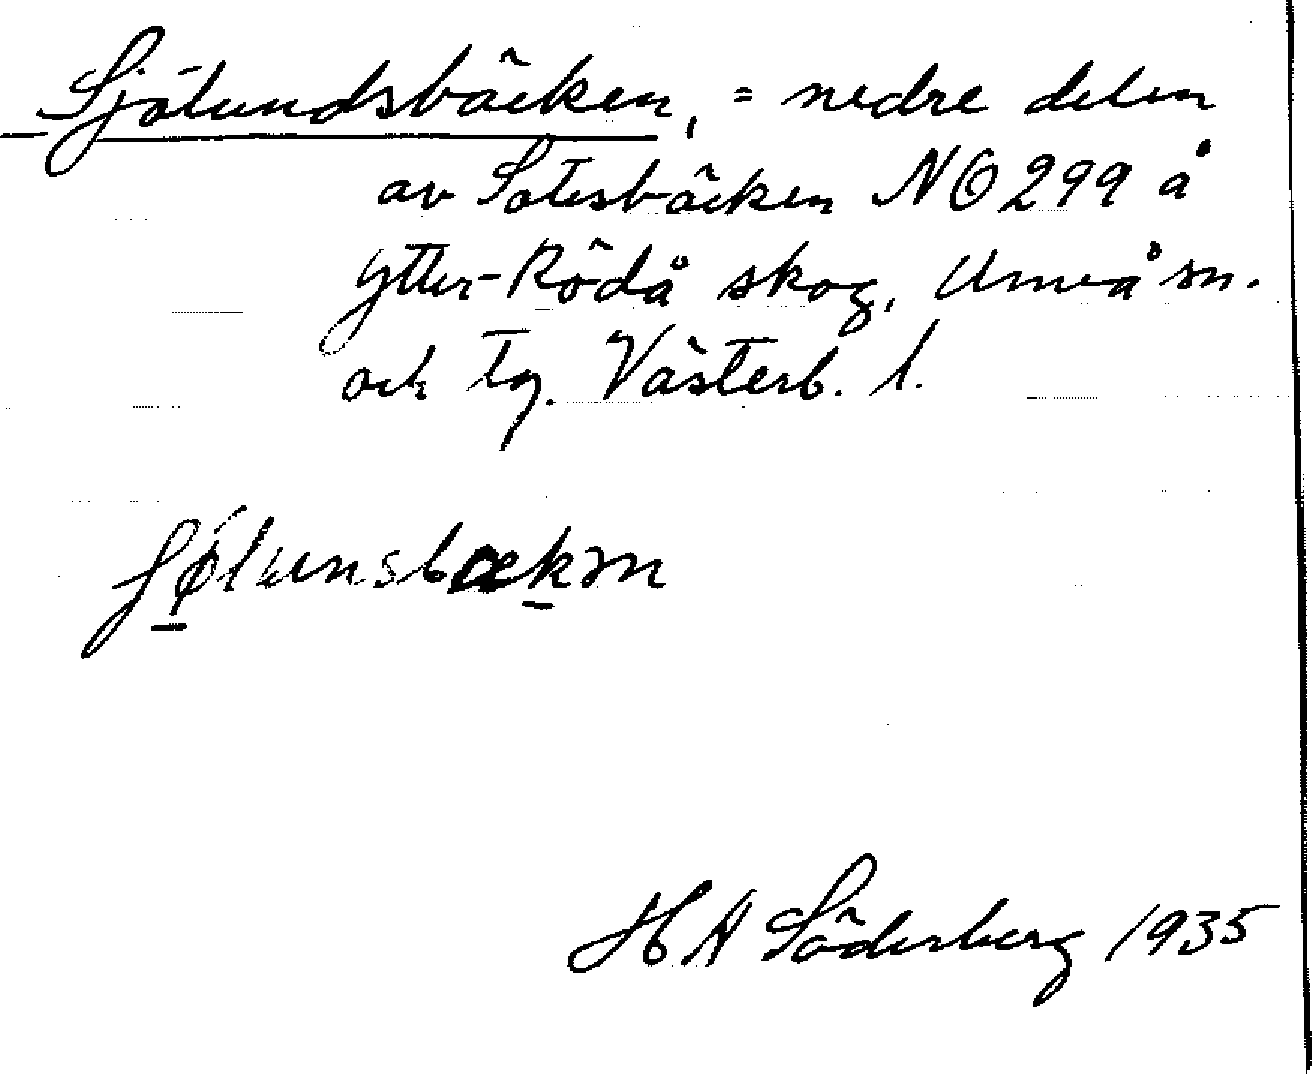 Sjölundsbäcken, = nedre delen
av Sotesbäcken NO 299 å
Ytter-Rödå skog, Umeå sn.
och tg. Västerb. l.
H A Söderberg 1935